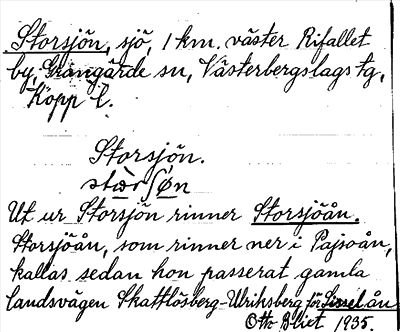 Storsjön, sjö, 1 km. väster Rifallet
by, Grangärde sn, Västerbergslags tg,
Kopp l.
Storsjön.
stærʃøn
Ut ur Storsjön rinner Storsjöån.
Storsjöån, som rinner ner i Pajsoån,
kallas sedan hon passerat gamla
landsvägen Skattlösberg-Ulriksberg för Lissel ån
Otto Blixt 1935.